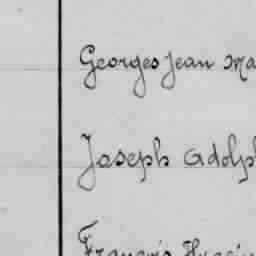 Georges Jean Ma
Joseph Adolph
François